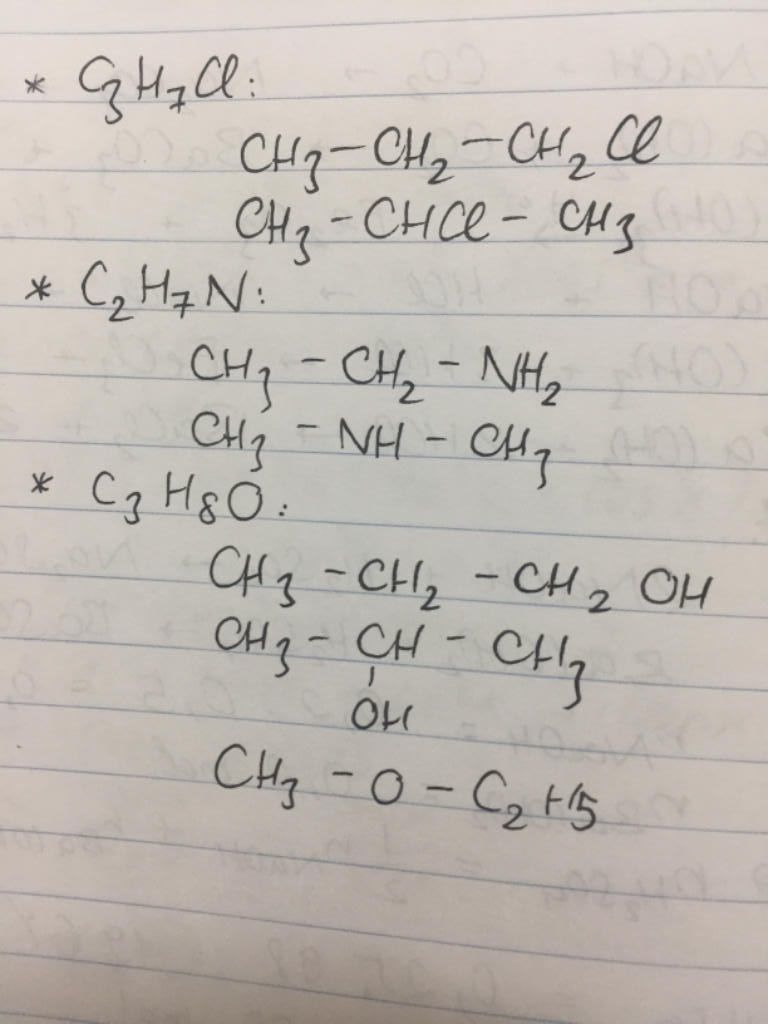 * C₃H₇Cl:
CH₃ – CH₂ – CH₂Cl
CH₃ – CHCl – CH₃
* C₂H₇N:
CH₃ – CH₂ – NH₂
CH₃ – NH – CH₃
* C₃H₈O:
CH₃ – CH₂ – CH₂OH
CH₃ – CH – CH₃
OH
CH₃ – O – C₂H₅